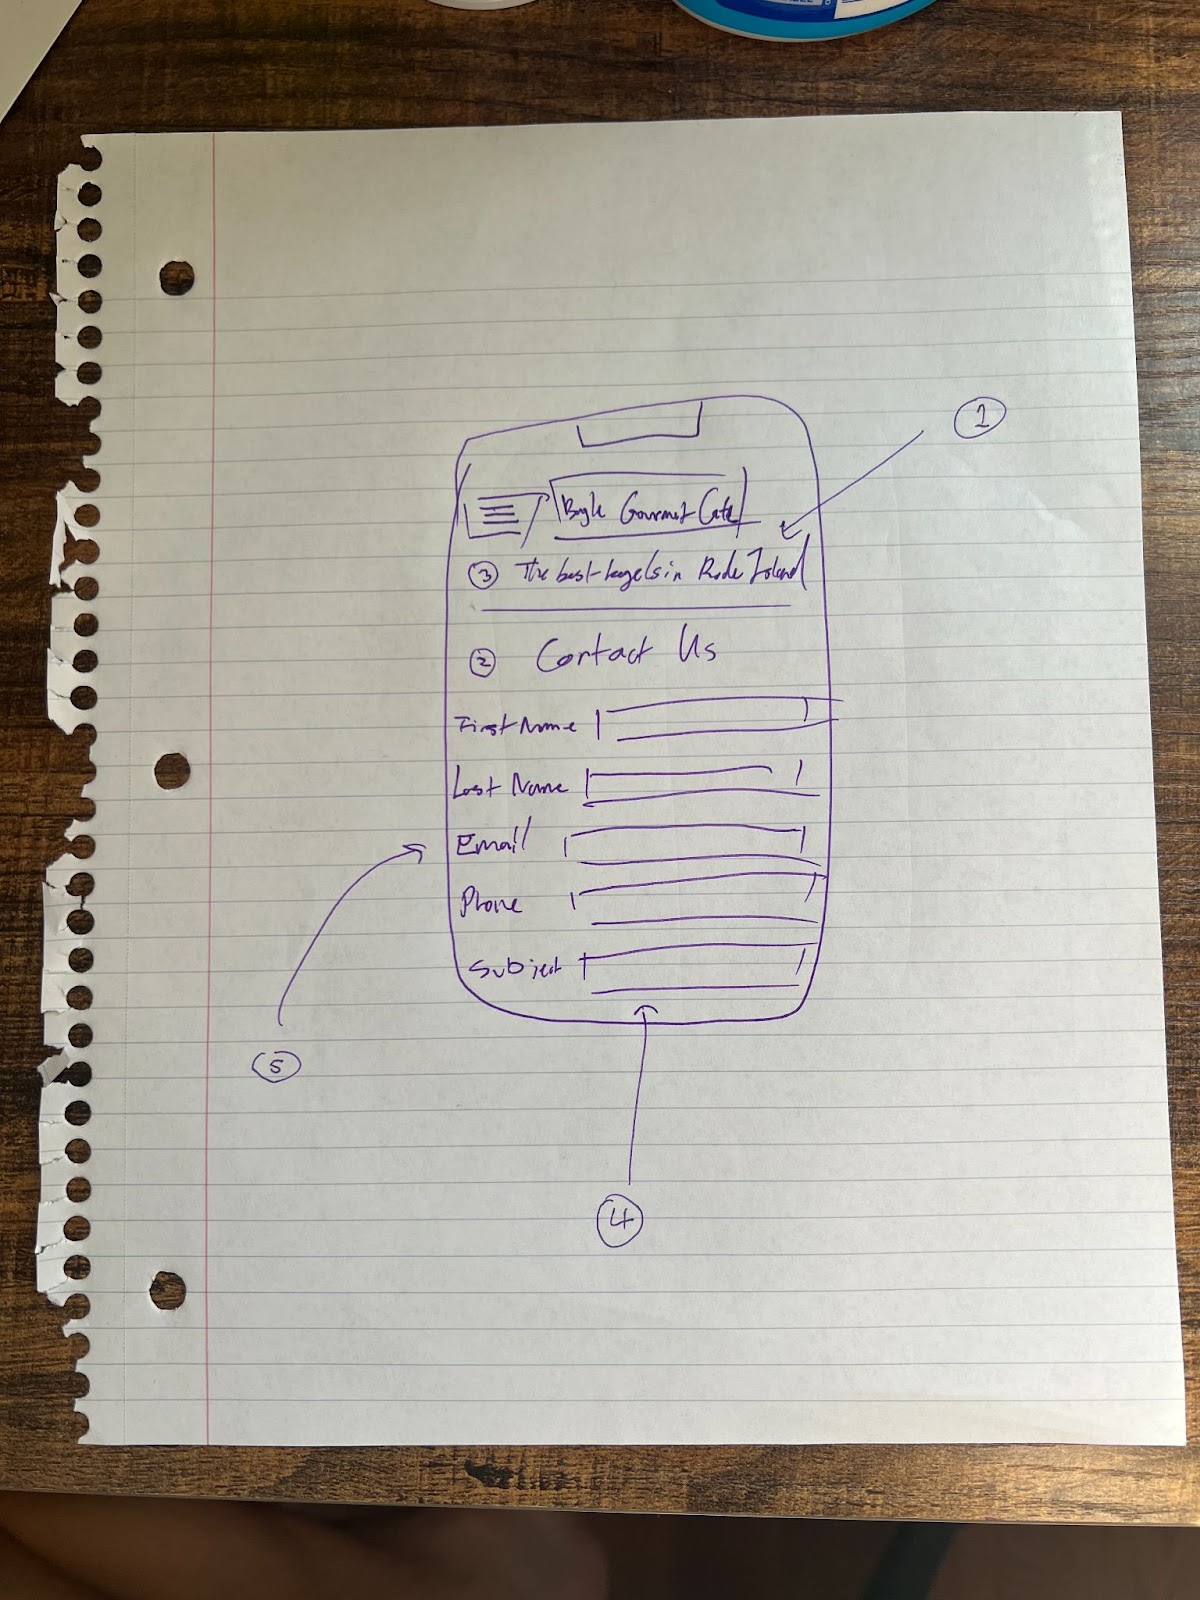 1
Gourmet Cafe
3 The best bagels in Rode Island
2 Contact Us
First Name
Last Name
Email
Phone
Subject
5
4